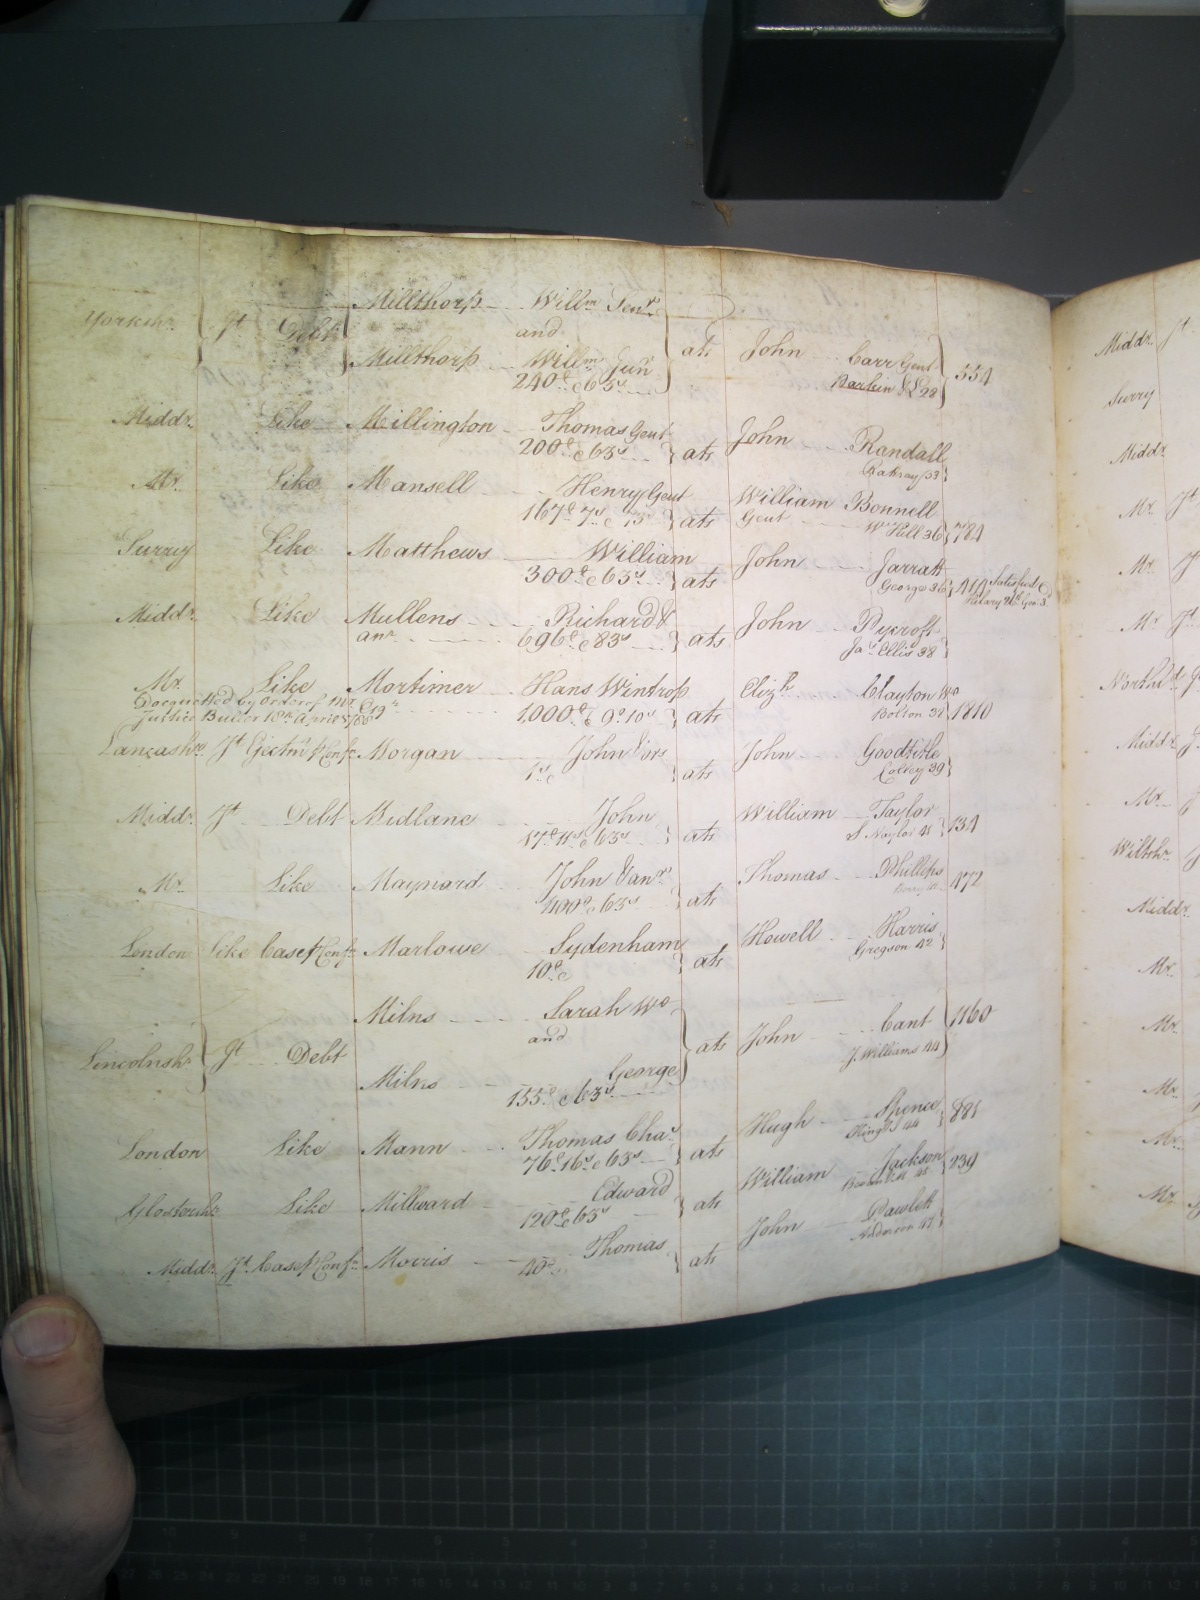 Millthorp Willm Senr
Yorkshr. Jt Debt and ats John Carr Gent 554
Millthorp Willm Junr Barkin & L 28
240£ & 63s
Middx. Like Millington Thomas Gent ats John Randall
200£ & 63s
Mx. Like Mansell Henry Gent ats William Bonnell
167£ 7s & 73s Gent W Hill 36 784
Surrey Like Matthews William ats John Jarratt
300£ & 63s George 36 Satisfied
Middx. Like Mullens Richard & ats John Pycroft
anr. 696£ & 83s Jas Ellis 38
Mx. Like Mortimer Hans Wintrop Elizh Clayton Wo
Docquetted by order of Mr
Justice Buller 18th April 1786 1,000£ & 9£ 10s ats Bolton 31 1810
Lancashre Jt Ejectmt p Conf Morgan John & ors ats John Goodtitle
1s & Colley 39
Middx. Jt Debt Midlane John ats William Taylor
17£ 11s & 63s S. Naylor 41 134
Mx. Like Maynard John & anr ats Thomas Phillips 472
400£ & 63s
London Like Case p Confn Marlowe Sydenham ats Howell Harris
10£ & Gregson 42
Milns Sarah Wo
Lincolnshr Jt Debt and ats John Cant 1160
Milns George J. Williams 44
155£ & 63s
London Like Mann Thomas Chas ats Hugh Spence 881
76£ 16s & 63s 44
Glostershr Like Millward Edward ats William Jackson 239
120£ & 63s
Middx. Jt Case p Confn Morris Thomas ats John Pawlett
40£ Anderson 47
Middx. Jt
Surry
Middx
Mx. Jt
Mx. J
Mx Jt
Northd
Middx J
Mx. J
Wiltshr
Middx.
Mx.
Mx.
Mx.
Mx.
Mx.